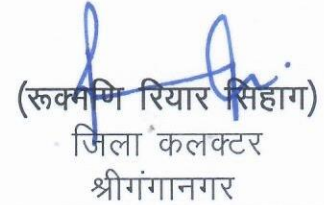 (रूक्मणि रियार सिहाग)
जिला कलक्टर
श्रीगंगानगर